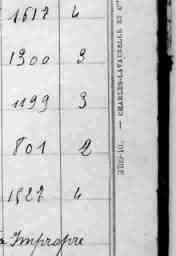 1517 4
1300 3
1199 3
801 2
1527 4
Impropre
CHARLES-LAVAUZELLE ET Cie